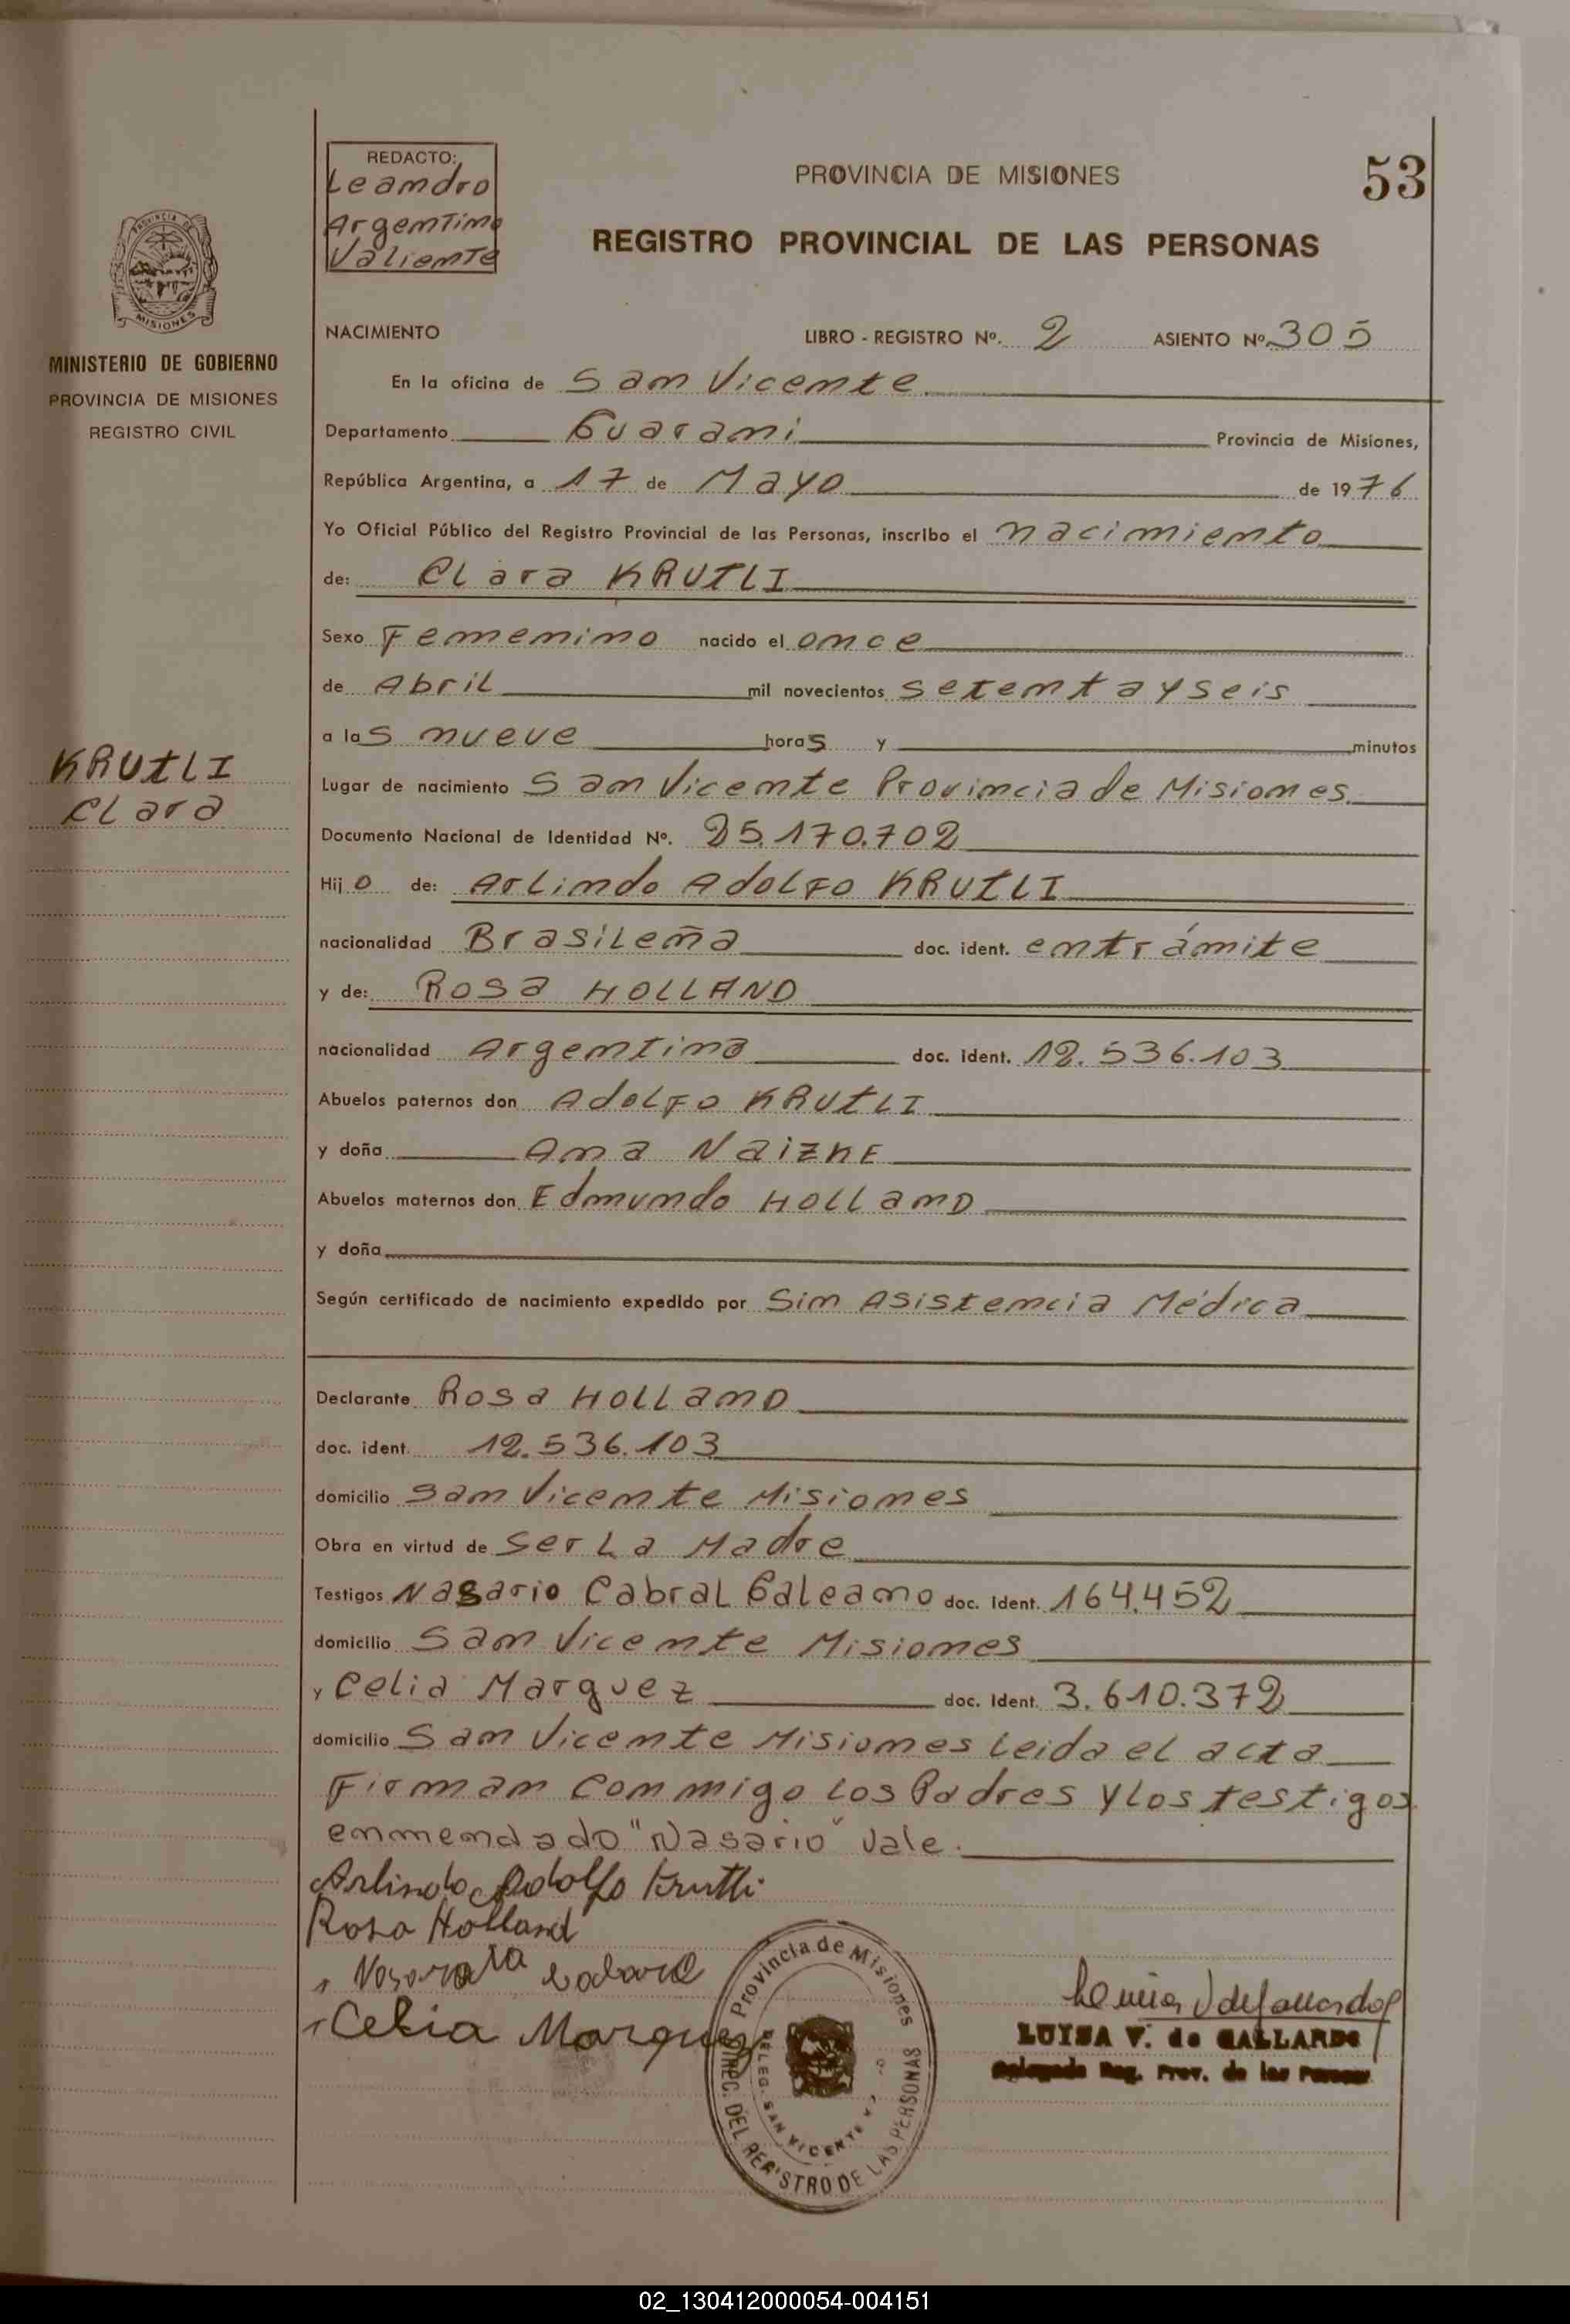 REDACTO:
Leandro
Argentino
Valiente
PROVINCIA DE MISIONES
53
REGISTRO PROVINCIAL DE LAS PERSONAS
PROVINCIA DE
MISIONES
MINISTERIO DE GOBIERNO
PROVINCIA DE MISIONES
REGISTRO CIVIL
KRUTLI
Clara
NACIMIENTO LIBRO - REGISTRO Nº. 2 ASIENTO Nº 305
En la oficina de San Vicente
Departamento Guarani Provincia de Misiones,
República Argentina, a 17 de Mayo de 1976
Yo Oficial Público del Registro Provincial de las Personas, inscribo el nacimiento
de: Clara KRUTLI
Sexo Femenino nacido el once
de Abril mil novecientos setenta y seis
a las nueve horas y minutos
Lugar de nacimiento San Vicente Provincia de Misiones
Documento Nacional de Identidad Nº. 25.170.702
Hijo de: Arlindo Adolfo KRUTLI
nacionalidad Brasileña doc. ident. en trámite
y de: Rosa HOLLAND
nacionalidad Argentina doc. ident. 12.536.103
Abuelos paternos don Adolfo KRUTLI
y doña Ana NaizKE
Abuelos maternos don Edmundo HOLLanD
y doña
Según certificado de nacimiento expedido por Sin Asistencia Médica
Declarante Rosa HOLLanD
doc. ident. 12.536.103
domicilio San Vicente Misiones
Obra en virtud de ser La Madre
Testigos Nasario Cabral Galeano doc. Ident. 164.452
domicilio San Vicente Misiones
y Celia Marquez doc. Ident. 3.610.372
domicilio San Vicente Misiones Leida el acta
Firman conmigo los Padres y los testigos
enmendado "Nasario" vale.
Arlindo Adolfo Krutli
Rosa Holland
Celia Marquez
Provincia de Misiones
DIREC. DEL REGISTRO DE LAS PERSONAS
DELEG. SAN VICENTE
LUISA V. de GALLARDO
Delegada Reg. Prov. de las Personas
02_130412000054-004151